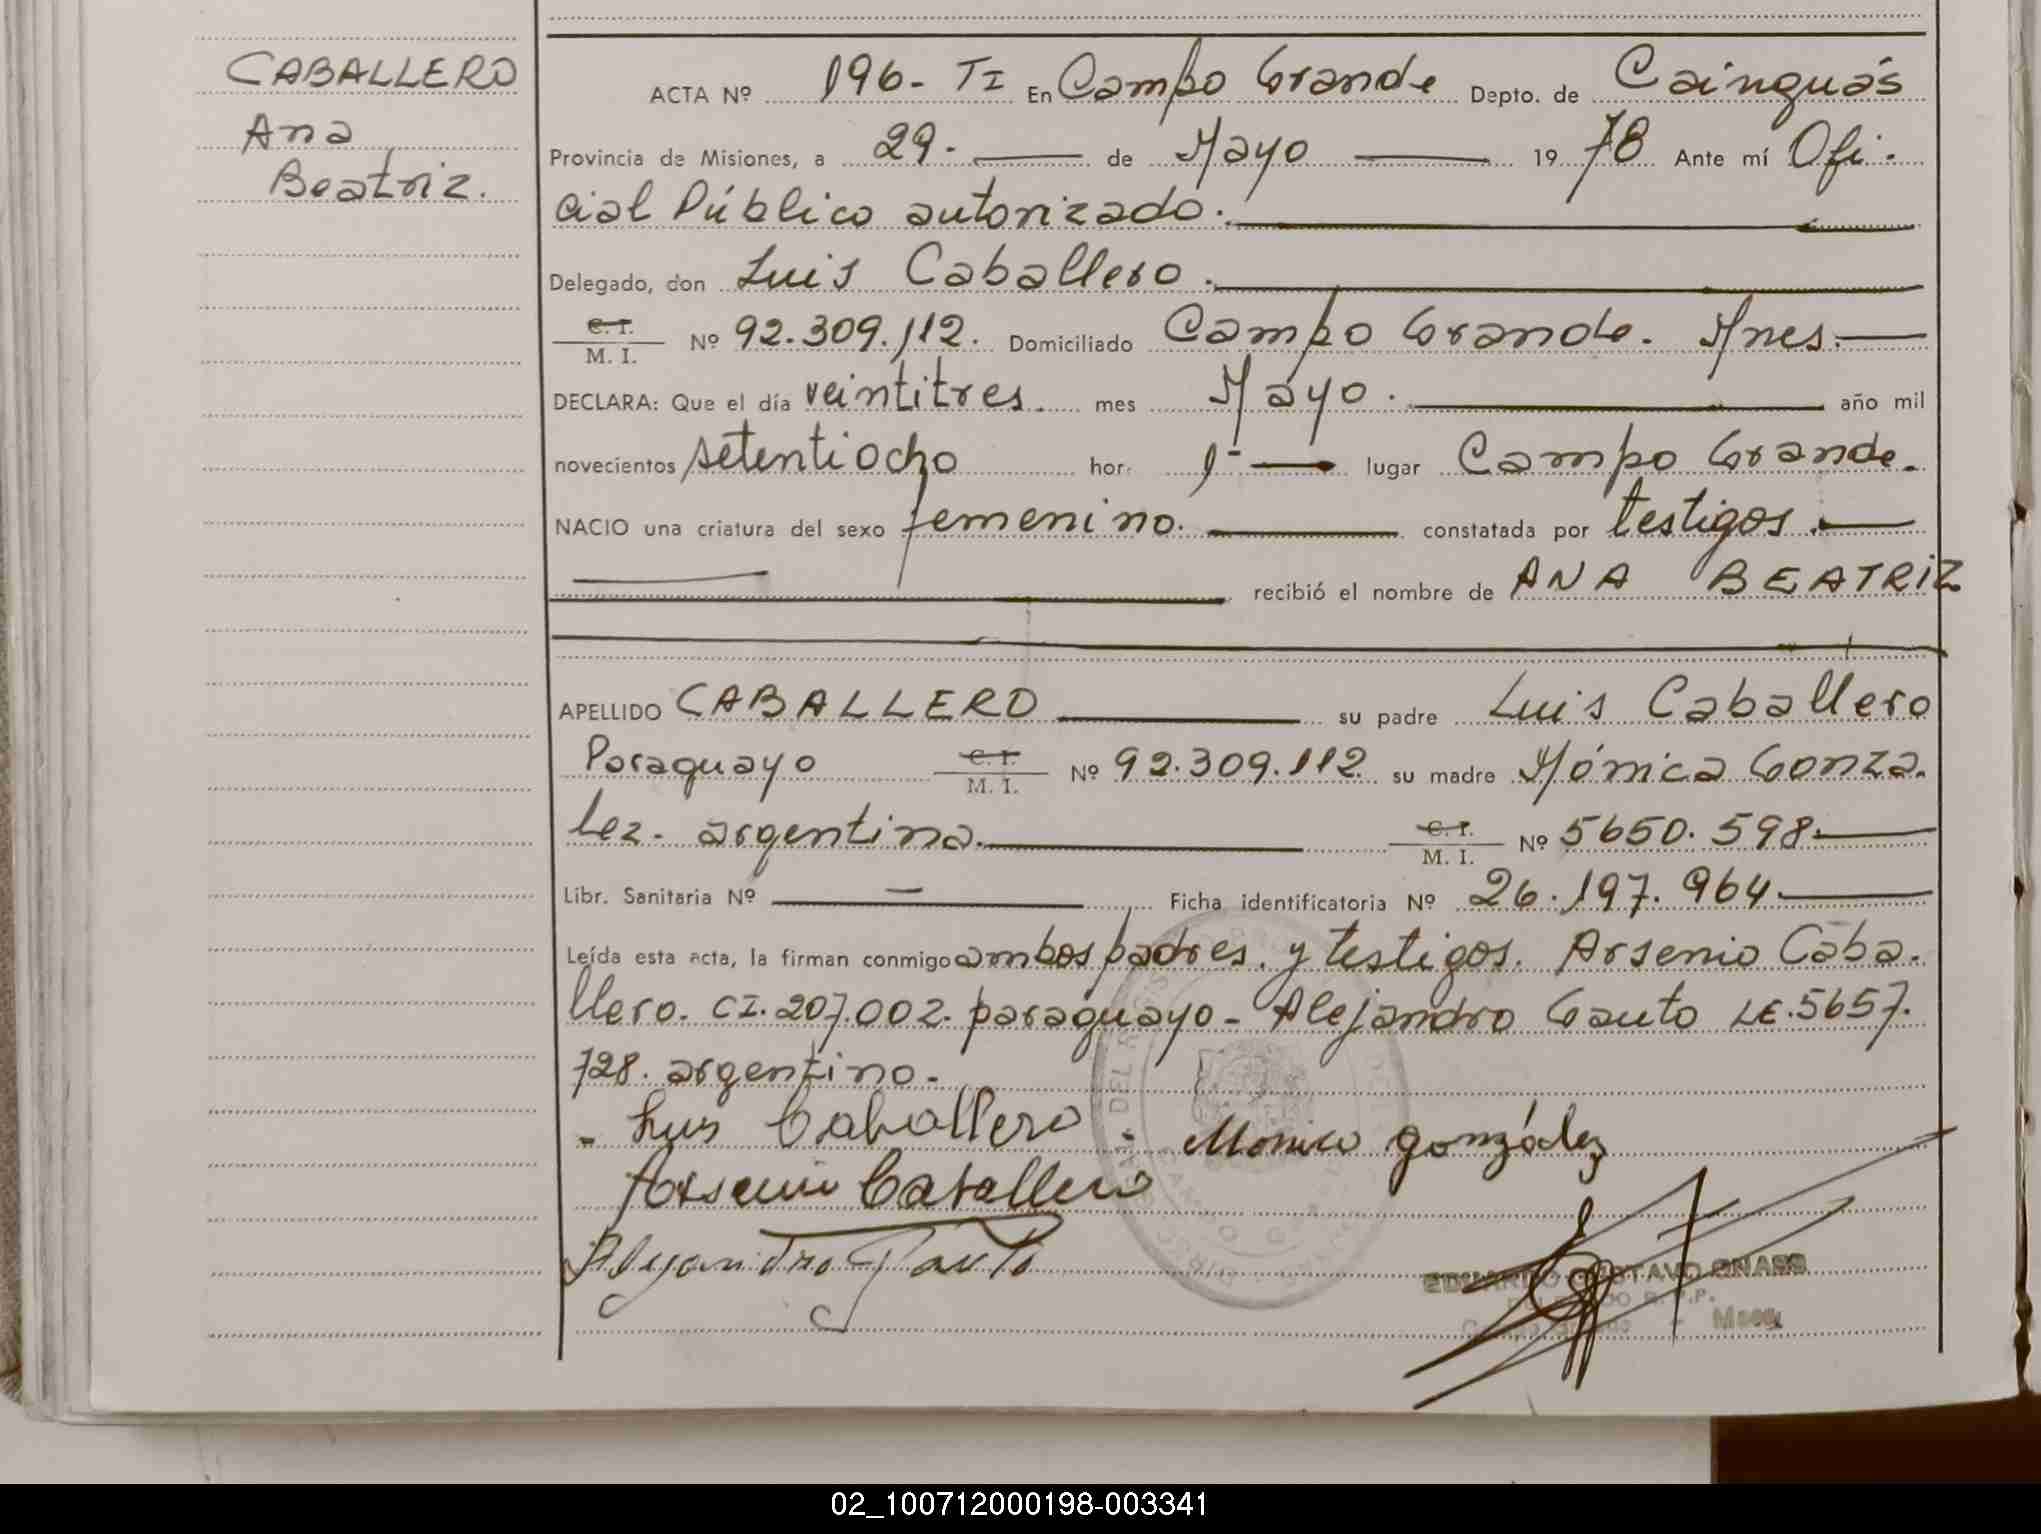 CABALLERO
Ana
Beatriz.
ACTA Nº 196- TI En Campo Grande Depto. de Cainguás
Provincia de Misiones, a 29. de Mayo 19 78 Ante mí Ofi.
cial Público autorizado.
Delegado, don Luis Caballero.
C. I. M. I. Nº 92.309.112. Domiciliado Campo Grande. Mnes.
DECLARA: Que el día veintitres mes Mayo. año mil
novecientos setentiocho hor. 1- lugar Campo Grande.
NACIO una criatura del sexo femenino. constatada por testigos.
recibió el nombre de ANA BEATRIZ
APELLIDO CABALLERO su padre Luis Caballero
Paraguayo C. I. M. I. Nº 92.309.112 su madre Mónica Gonza.
lez. argentina. C. I. M. I. Nº 5650.598
Libr. Sanitaria Nº — Ficha identificatoria Nº 26.197.964
Leída esta acta, la firman conmigo ambos padres. y testigos. Arsenio Caba.
llero. CI. 207.002. paraguayo - Alejandro Gauto LE. 5657.
728. argentino.
Luis Caballero - Monica gonzález
Arsenio Caballero
Alejandro Gauto
EDUARDO GUSTAVO GNASS
02_100712000198-003341